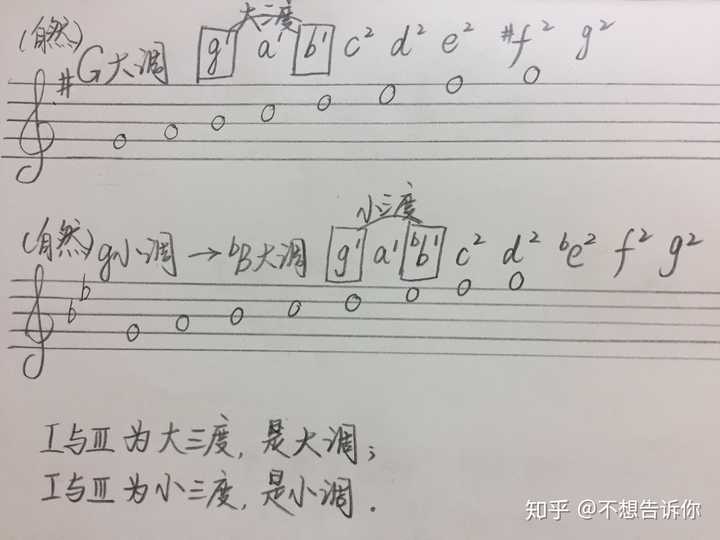 大三度
(自然)
#G大调 g¹ a¹ b¹ c² d² e² #f² g²
小三度
(自然)g小调→ᵇB大调 g¹ a¹ ᵇb¹ c² d² ᵇe² f² g²
b b
I与III为大三度,是大调;
I与III为小三度,是小调.
知乎 @不想告诉你